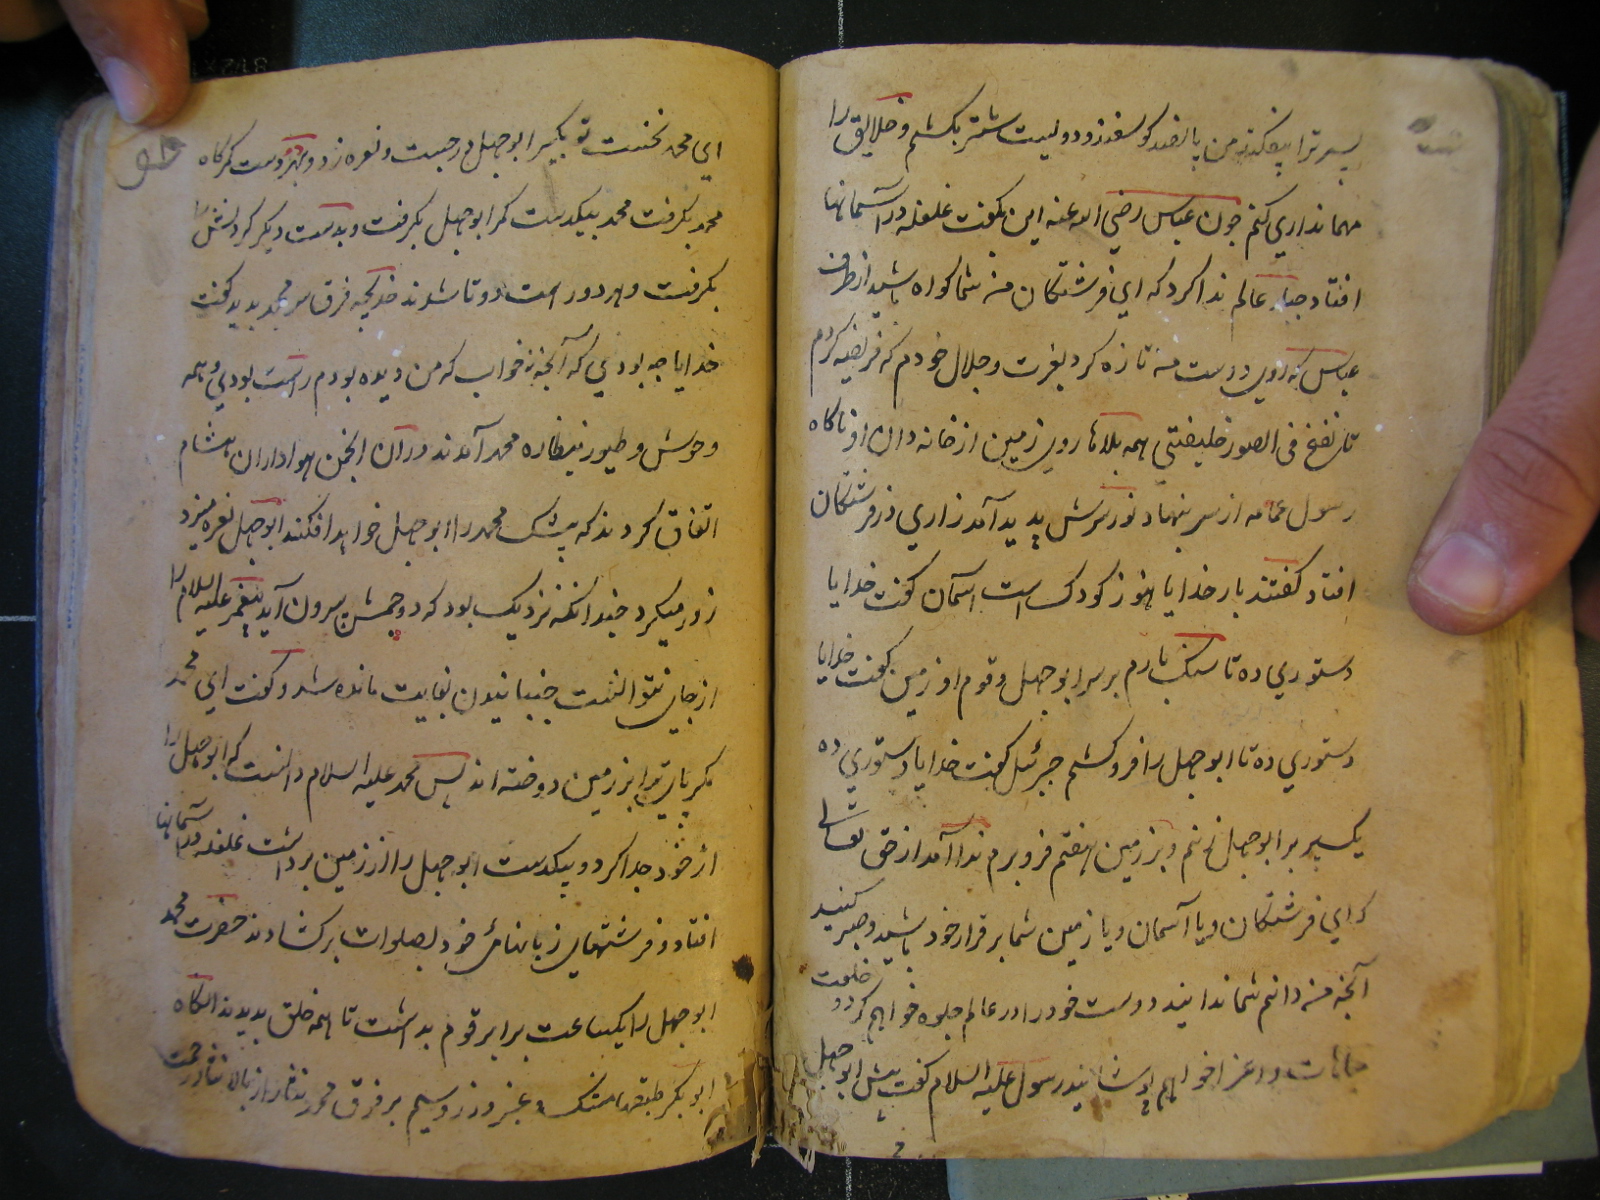 پسر ترا بیفکند من پانصد کوسفند و دویست شتر بکشم و خلایق را
مهمانداری کنم چون عباس رضی الله عنه این بکفت غلغله در آسمانها
افتاد جبار عالم ندا کرد که ای فرشتکان من شما کواه باشید از طرف
عباس که روی دوست من تازه کرد بعزت و جلال خودم که فریضه کردم
تا نفخ فی الصور خلیفتی همه بلاها روی زمین از خانه دان او ناکاه
رسول عمامه از سر بنهاد نور سرش پدید آمد زاری در فرشتکان
افتاد کفتند بار خدایا هنوز کودک است آسمان کفت خدایا
دستوری ده تا سنک بارم بر سر ابوجهل و قوم او زمین کفت خدایا
دستوری ده تا ابوجهل را فرو کشم جبرئیل کفت خدایا دستوری ده
یکسر پر ابوجهل زنم و بر زمین هفتم فرو برم ندا آمد از حق تعالی
که ای فرشتکان و یا آسمان و یا زمین شما بر قرار خود باشید و صبر کنید
آنچه من دانم شما ندانید دوست خود را در عالم جلوه خواهم کرد و خلعت
رسول علیه السلام کفت پیش ابوجهل
ای محمد نخست تو بکیر ابوجهل در جست و نعره زد و بهر دو دست کمرکاه
محمد بکرفت محمد بیکدست کمر ابوجهل بکرفت و بدست دیکر کردنش را
بکرفت و هر دو راست دو تا شدند خدیجه فرق سر محمد بدید کفت
خدایا چه بودی که آنچه در خواب که من دیده بودم راست بودی و همه
وحوش و طیور بنظاره محمد آمدند در آن انجمن هواداران هشام
اتفاق کردند که بیشک محمد را ابوجهل خواهد افکند ابوجهل نعره میزد
زور میکرد چندانکه نزدیک بود که دو چشمش بیرون آید پیغمبر علیه السلام را
از جای نتوانست جنبانیدن بغایت مانده شد و کفت ای محمد
مکر پای ترا بر زمین دوخته اند پس محمد علیه السلام دانست که ابوجهل را
از خود جدا کرد و بیکدست ابوجهل را از زمین برداشت غلغله در آسمانها
افتاد و فرشتهای زبانهای خود بصلوات برکشادند حضرت محمد
ابوجهل را یکساعت برابر قوم بداشت تا همه خلق بدیدند آنکاه
ابوبکر طبقهای مشک و عنبر و زر و سیم بر فرق محمد نثار